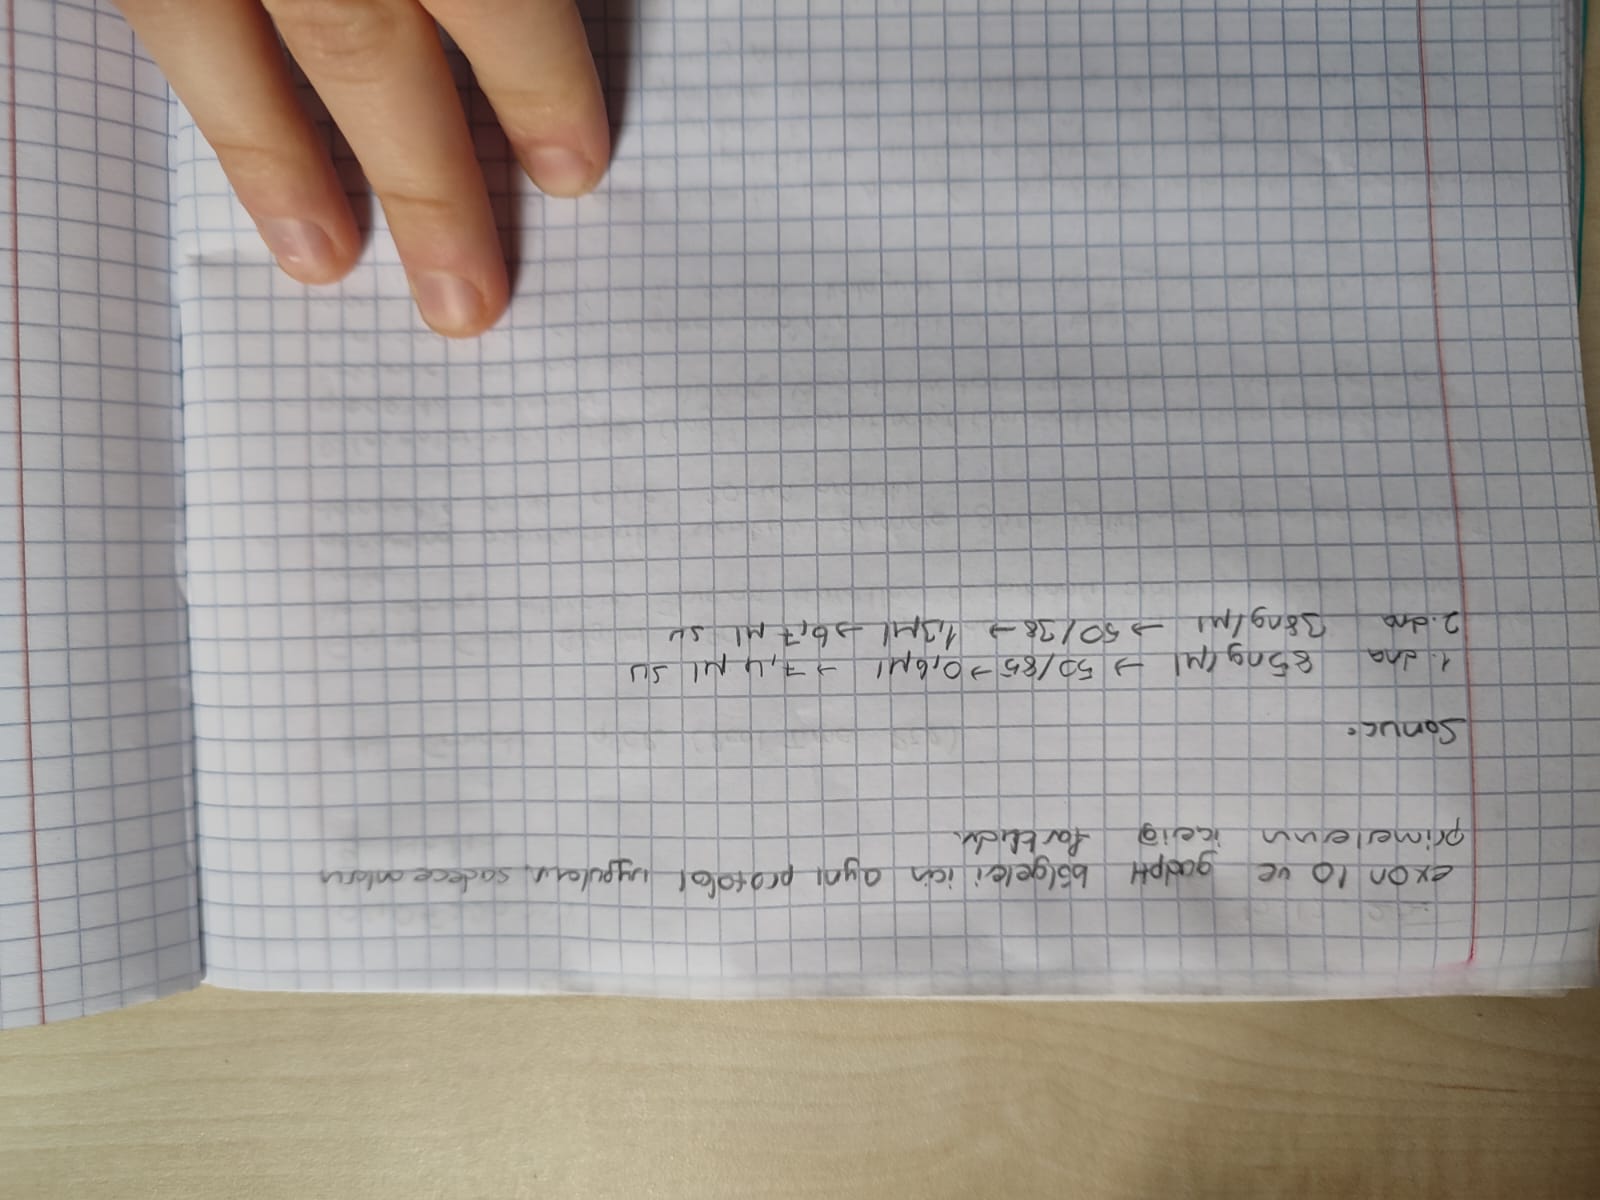 exon 10 ve gadpH bölgeleri için aynı protokol uygulanır, sadece onların
primerlerinin içeriği farklıdır.
Sonuc:
1. dna 85ng/µl → 50/85 → 0,6µl → 7,4 µl su
2. dna 38ng/µl → 50/38 → 1,3µl → 6,7 µl su